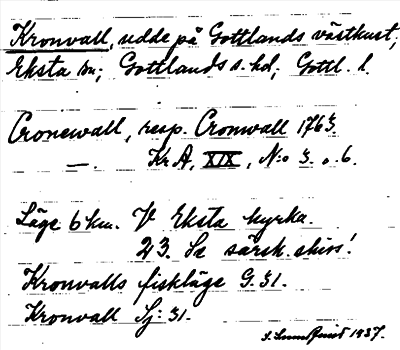 Kronvall, udde på Gottlands västkust,
Eksta sn; Gottlands s. hd; Gottl. l.
Cronewall, resp. Cronwall 1763
—. Kr A, XIX, N:o 3. o. 6.
Läge 6 km. V Eksta kyrka.
23. Se särsk. skiss!
Kronvalls fiskläge G. 31.
Kronvall Sj: 31.
1937.